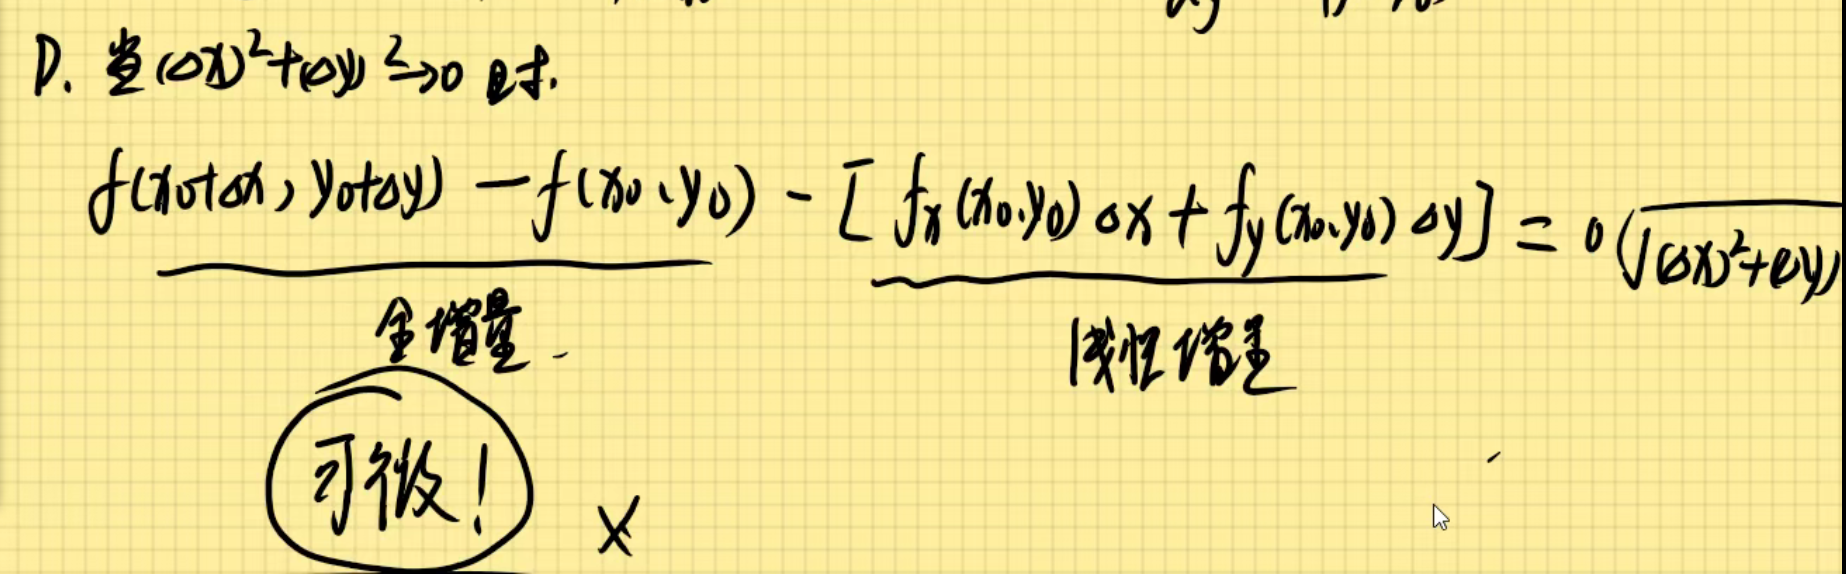 D. 当(Δx)²+(Δy)²→0 时.
f(x₀+Δx, y₀+Δy) − f(x₀, y₀) − [f_x(x₀, y₀)Δx + f_y(x₀, y₀)Δy] = o(√(Δx)²+(Δy)
全增量 线性增量
可微! ×